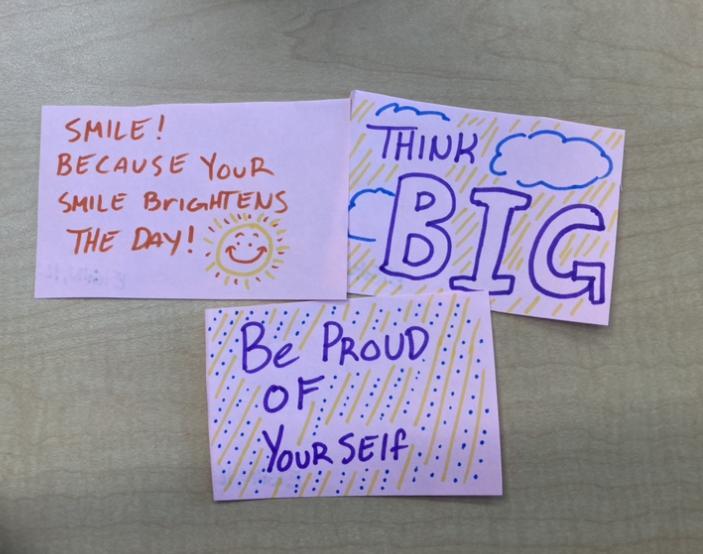 SMILE!
BECAUSE YOUR
SMILE BrIGHTENS
THE DAY!
THINK
BIG
Be PROUD
OF
YOURSElf